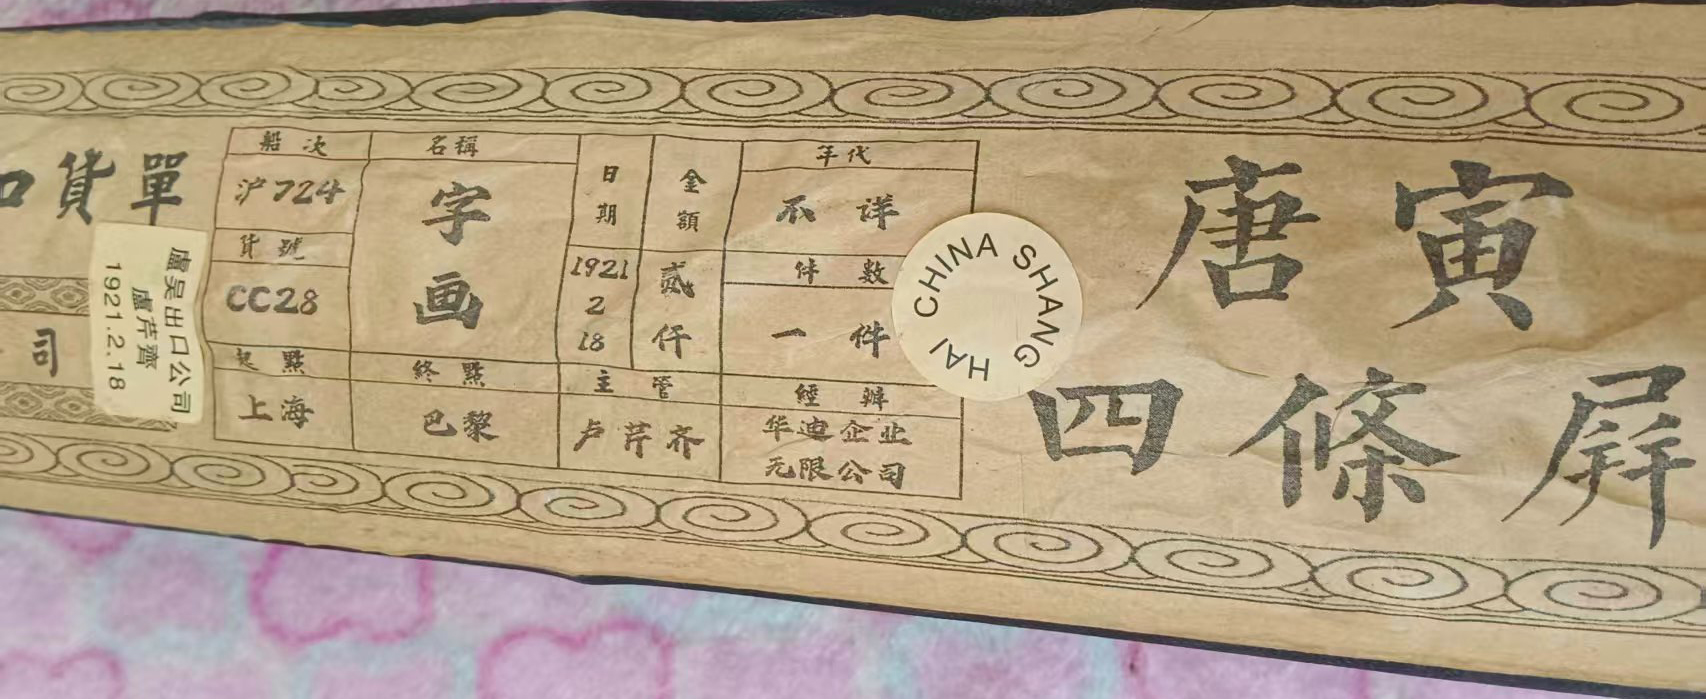 口貨單
司
盧吴出口公司
盧芹齋
1921.2.18
船次
沪724
貨號
CC28
起點
上海
名稱
字画
終點
巴黎
日期
1921
2
18
金額
贰仟
主管
卢芹齐
年代
不详
件數
一件
經辦
华迪企业
无限公司
CHINA SHANG HAI
唐寅
四條屏